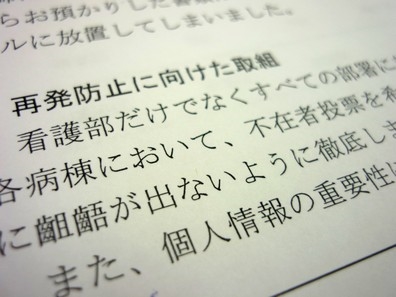 らお預かりした書類
ルに放置してしまいました。
再発防止に向けた取組
看護部だけでなくすべての部署に
各病棟において、不在者投票を希
に齟齬が出ないように徹底しま
また、個人情報の重要性に